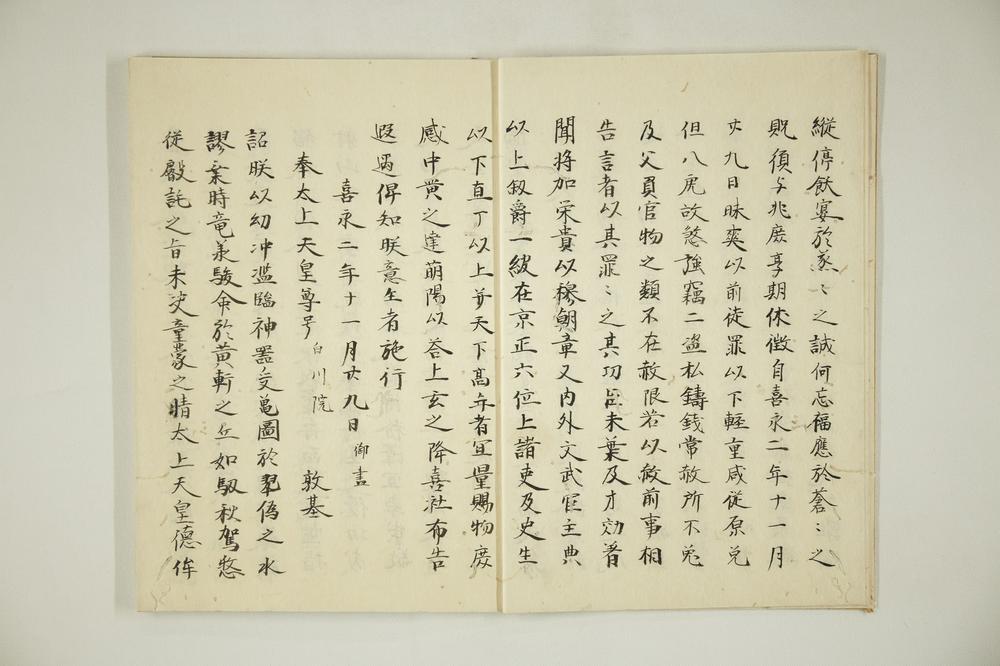 縦停飲宴於烝〻之誠何忘福應於蒼〻之
貺須与兆庶享期休徴自喜永二年十一月
廿九日昧爽以前徒罪以下軽重咸従原免
但八虐故慜強竊二盗私鑄錢常赦所不免
及父員官物之類不在赦限若以赦前事相
告言者以其罪〻之其功臣末葉及才効著
聞将加栄貴以穆朝章又内外文武官主典
以上叙爵一級在京正六位上諸吏及史生
以下直丁以上并天下高年者宜量賜物庶
感中黄之達萠陽以荅上玄之降喜社布告
遐迩俾知朕意主者施行
喜永二年十一月廿九日 御畫
奉太上天皇尊号 白川院 敦基
詔朕以幼冲濫臨神器受亀圖於翠偽之水
謬乗時竜承駿命於黄軒之丘如馭秋駕愁
従殿託之旨未決童蒙之情太上天皇德侔